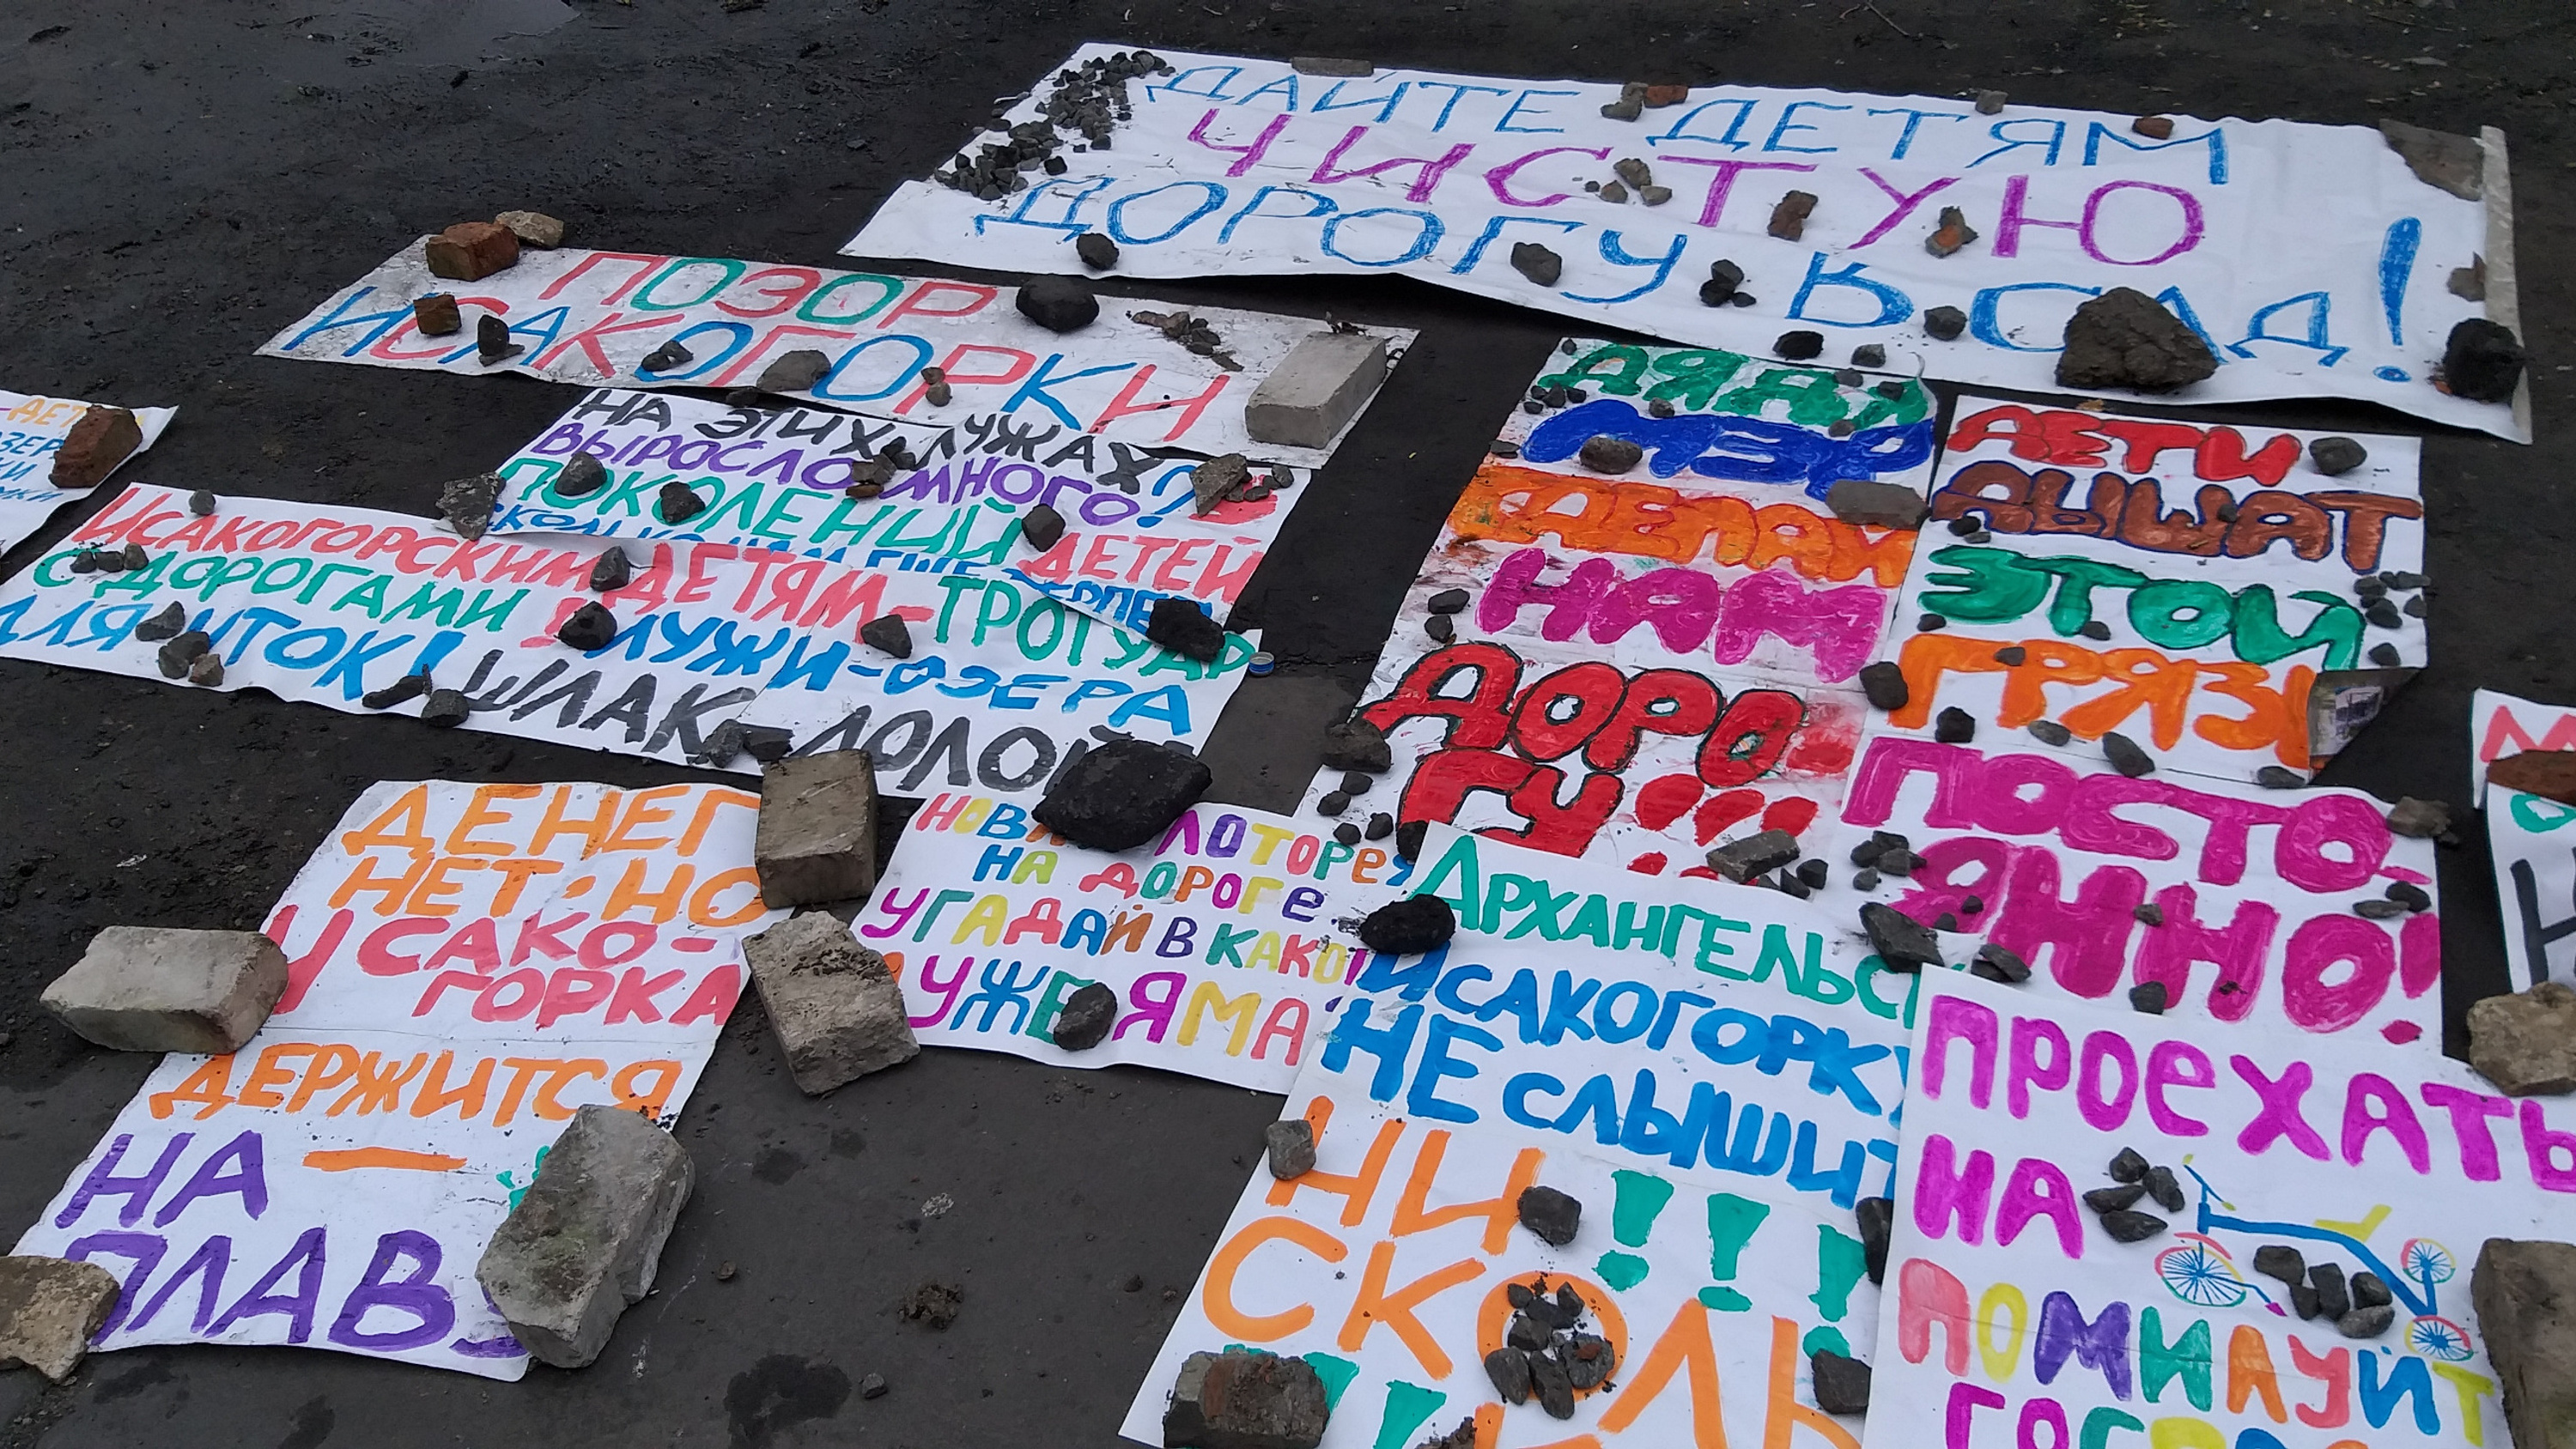 ДАЙТЕ ДЕТЯМ
ЧИСТУЮ
ДОРОГУ В САД!
ПОЗОР
ИСАКОГОРКИ
НА ЭТИХ ЛУЖАХ
ВЫРОСЛО МНОГО?
ПОКОЛЕНИЙ ДЕТЕЙ
ИСАКОГОРСКИМ ДЕТЯМ-ТРОТУАР
С ДОРОГАМИ! ЛУЖИ-ОЗЕРА
ДЛЯ УТОК! ШЛАК-ДОЛОЙ
ДЯДЯ
МЭР
ДЕЛАЙ
НАМ
ДОРО-
ГУ!!!
ДЕТИ
ДЫШАТ
ЭТОЙ
ГРЯЗЬЮ
ПОСТО-
ЯННО!
ДЕНЕГ
НЕТ. НО
ИСАКО-
ГОРКА
ДЕРЖИТСЯ
НА
ПЛАВ
ЛОТОРЕЯ
НА ДОРОГЕ.
УГАДАЙ В КАКОЙ
ЛУЖЕ ЯМА?
АРХАНГЕЛЬСК
ИСАКОГОРКУ
НЕ СЛЫШИТ
НИ !!!
СКОЛЬ
ПРОЕХАТЬ
НА
ПОМИЛУЙ